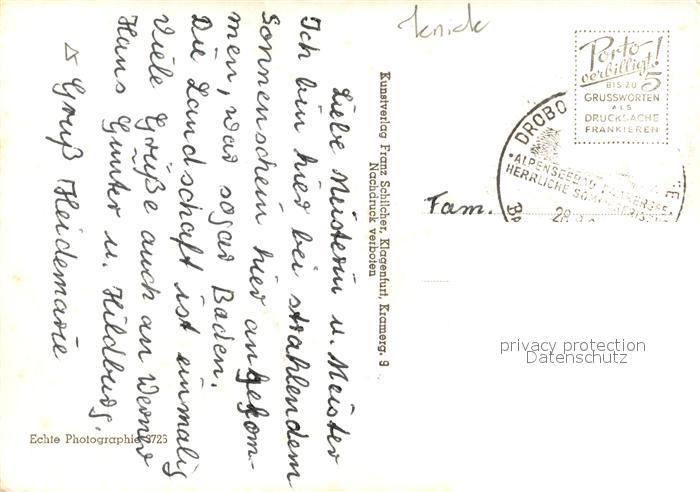 Knick
Liebe Meisterin u. Meister
Ich bin hier bei strahlendem
Sonnenschein hier angekom-
men, war sogar Baden.
Die Landschaft ist einmalig
Viele Grüße auch an Werner
Hans Gunter u. Hildburg.
Gruß Heidemarie
Kunstverlag Franz Schilcher, Klagenfurt, Kramerg. 9
Nachdruck verboten
Echte Photographie 3723
Porto
verbilligt!
BIS ZU 5
GRUSSWORTEN
ALS
DRUCKSACHE
FRANKIEREN
DROBO
ALPENSEEBAD
HERRLICHE
28.
Fam.
privacy protection
Datenschutz